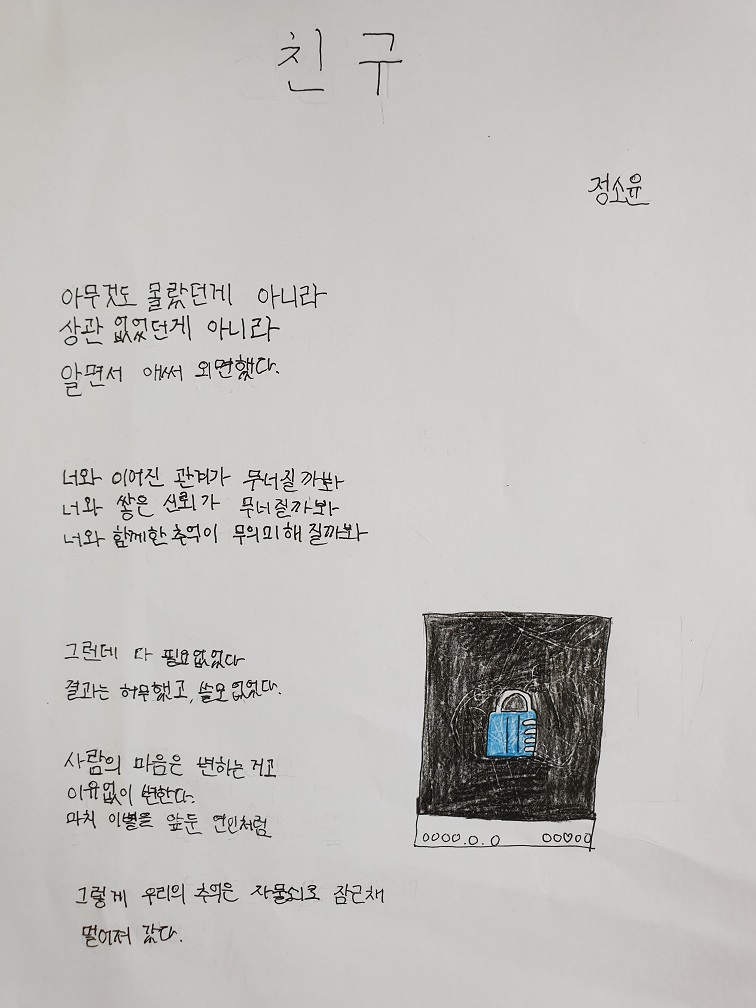 친구
정소윤
아무것도 몰랐던게 아니라
상관 없었던게 아니라
알면서 애써 외면했다.
너와 이어진 관계가 무너질까봐
너와 쌓은 신뢰가 무너질까봐
너와 함께한 추억이 무의미해 질까봐
그런데 다 필요없었다
결과는 허무했고, 쓸모 없었다.
사람의 마음은 변하는 거고
이유없이 변한다.
마치 이별을 앞둔 연인처럼
그렇게 우리의 추억은 자물쇠로 잠근채
멀어져 갔다.